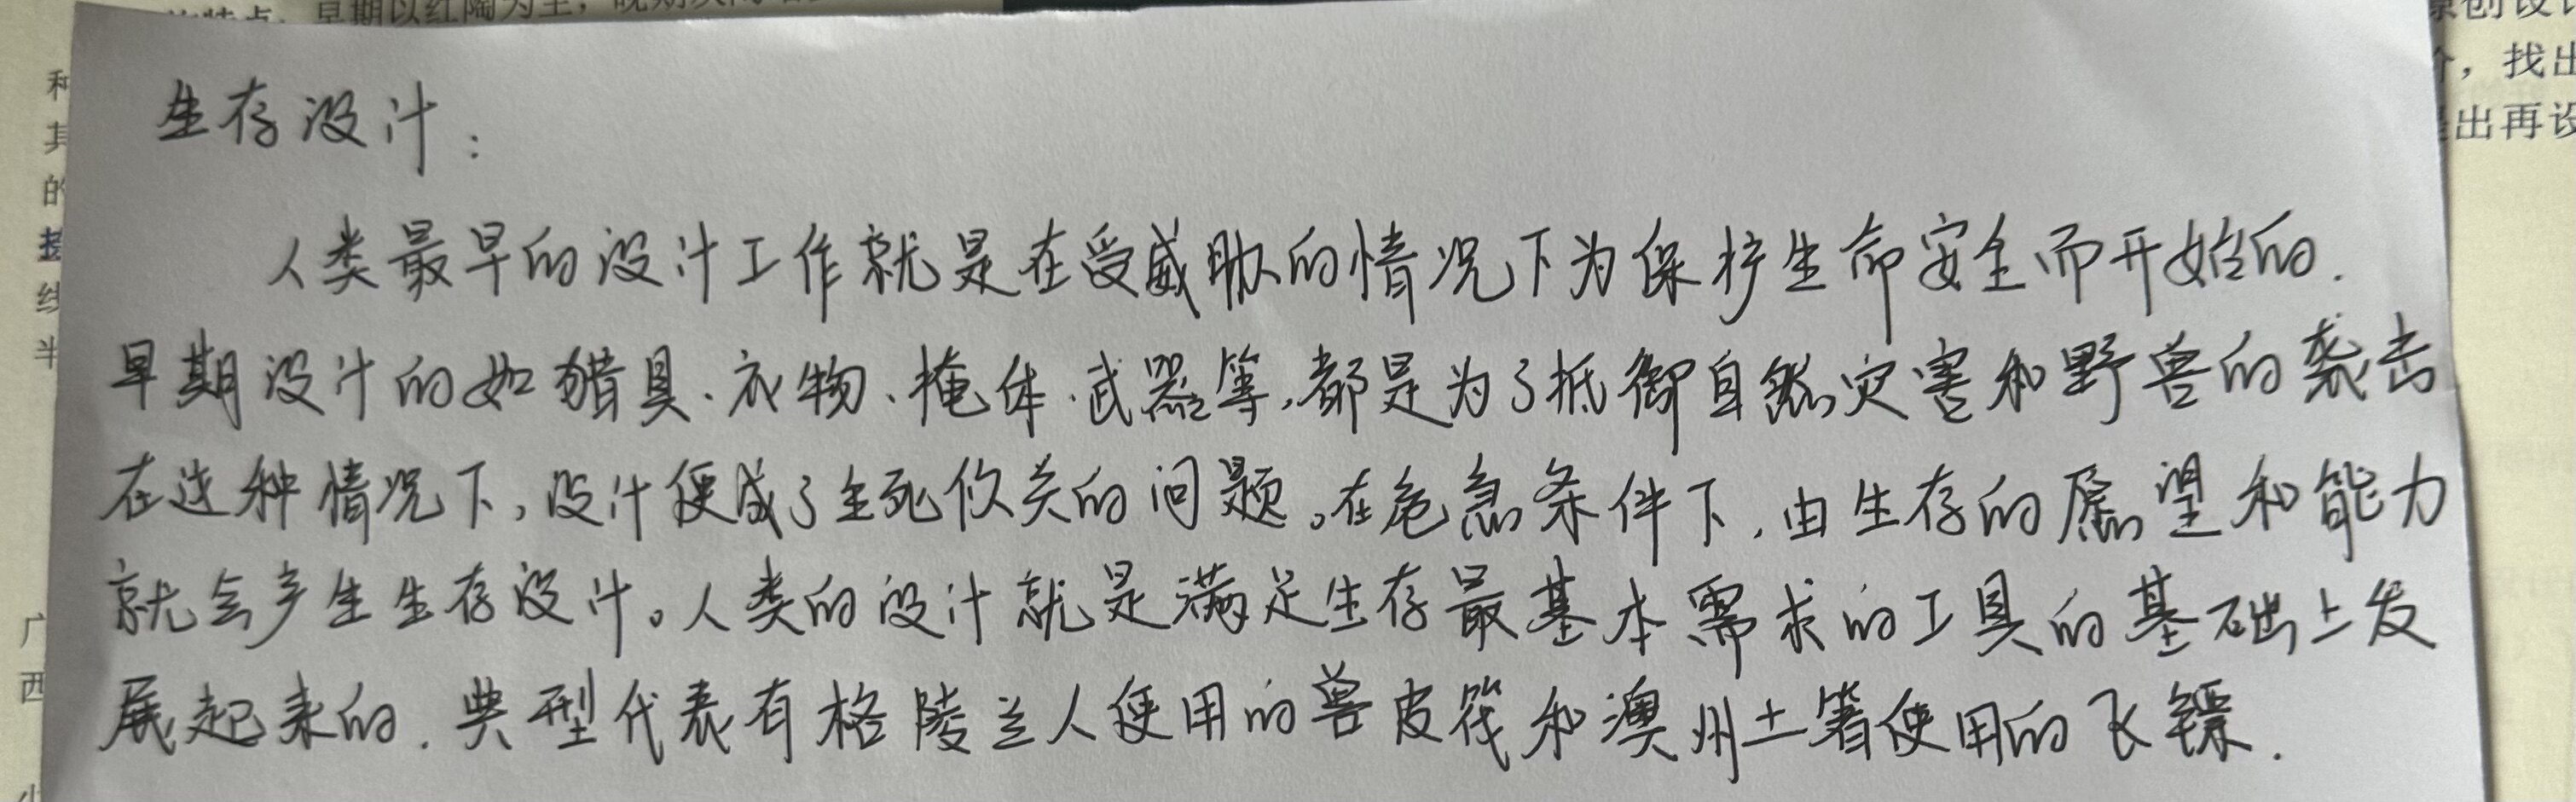 生存设计：
人类最早的设计工作就是在受威胁的情况下为保护生命安全而开始的.
早期设计的如猎具、衣物、掩体、武器等,都是为了抵御自然灾害和野兽的袭击
在这种情况下,设计便成了生死攸关的问题。在危急条件下,由生存的愿望和能力
就会产生生存设计。人类的设计就是满足生存最基本需求的工具的基础上发
展起来的.典型代表有格陵兰人使用的兽皮筏和澳州土著使用的飞镖.
种
其
的
线
半
广
西
早期以红陶为主，
原创设计
，找出
出再设